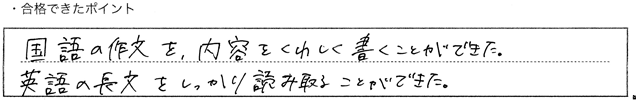 ・合格できたポイント
国語の作文を、内容をくわしく書くことができた。
英語の長文をしっかり読み取ることができた。